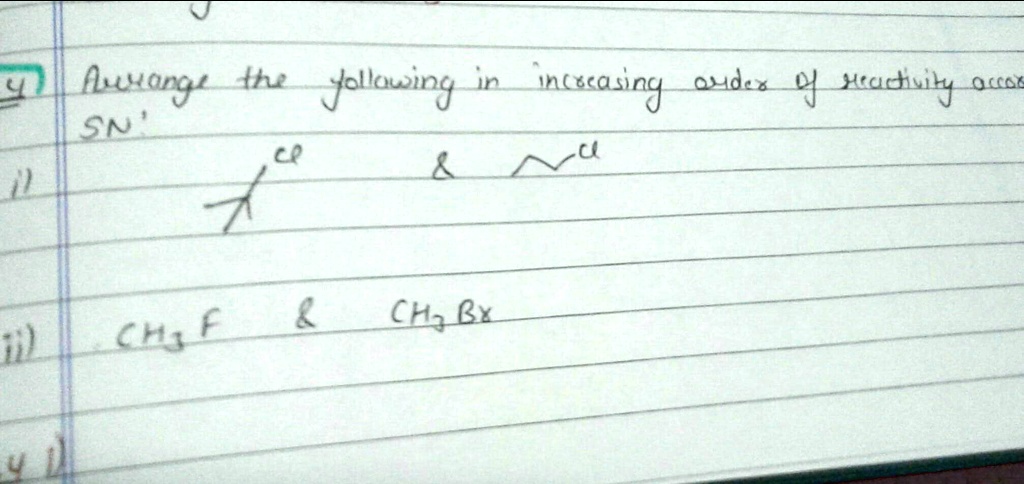 4) Arrange the following in increasing order of reactivity accor
SN'
i) Cl & Cl
ii) CH3F & CH3Br
4 1)